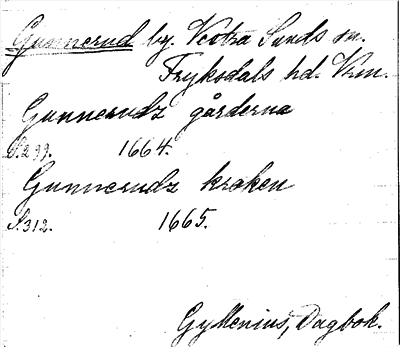 Gunnerud by. Västra Sunds sn.
Fryksdals hd. Vrm.
Gunnerudz gårderna
S. 299. 1664.
Gunnerudz kroken
S. 312. 1665.
Gyllenius, Dagbok.